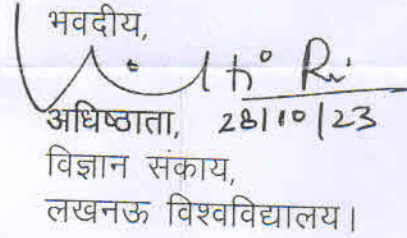 भवदीय,
अधिष्ठाता, 28/10/23
विज्ञान संकाय,
लखनऊ विश्वविद्यालय।